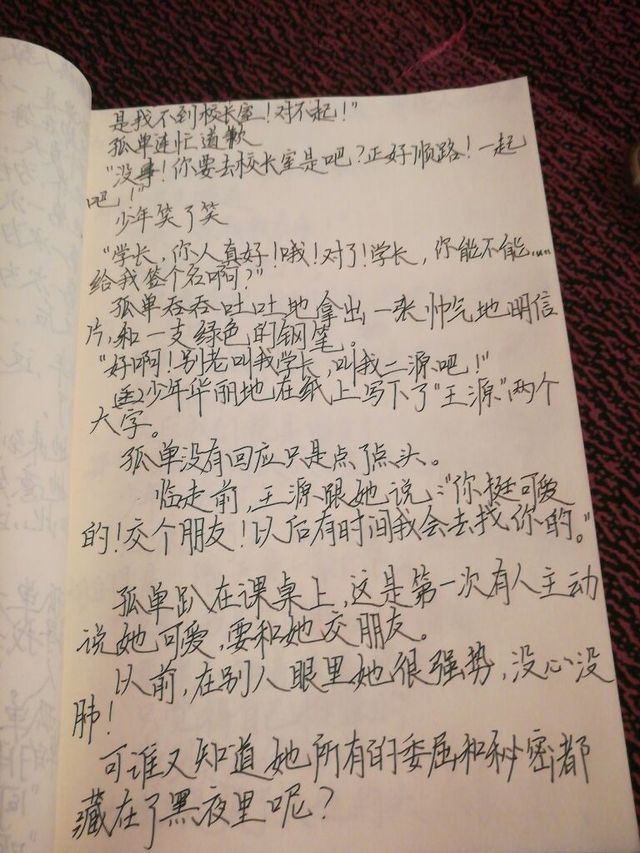 是我不到校长室!对不起!"
孤单连忙道歉
"没事!你要去校长室是吧?正好顺路!一起
吧!"
少年笑了笑
"学长,你人真好!哦!对了!学长,你能不能……
给我签个名啊?"
孤单吞吞吐吐地拿出一张帅气地明信
片,和一支绿色的钢笔。
"好啊!别老叫我学长,叫我二源吧!"
少年华丽地在纸上写下了"王源"两个
大字。
孤单没有回应只是点了点头。
临走前,王源跟她说:"你挺可爱
的!交个朋友!以后有时间我会去找你的。"
孤单趴在课桌上,这是第一次有人主动
说她可爱,要和她交朋友。
以前,在别人眼里她很强势,没心没
肺!
可谁又知道她所有的委屈和秘密都
藏在了黑夜里呢?